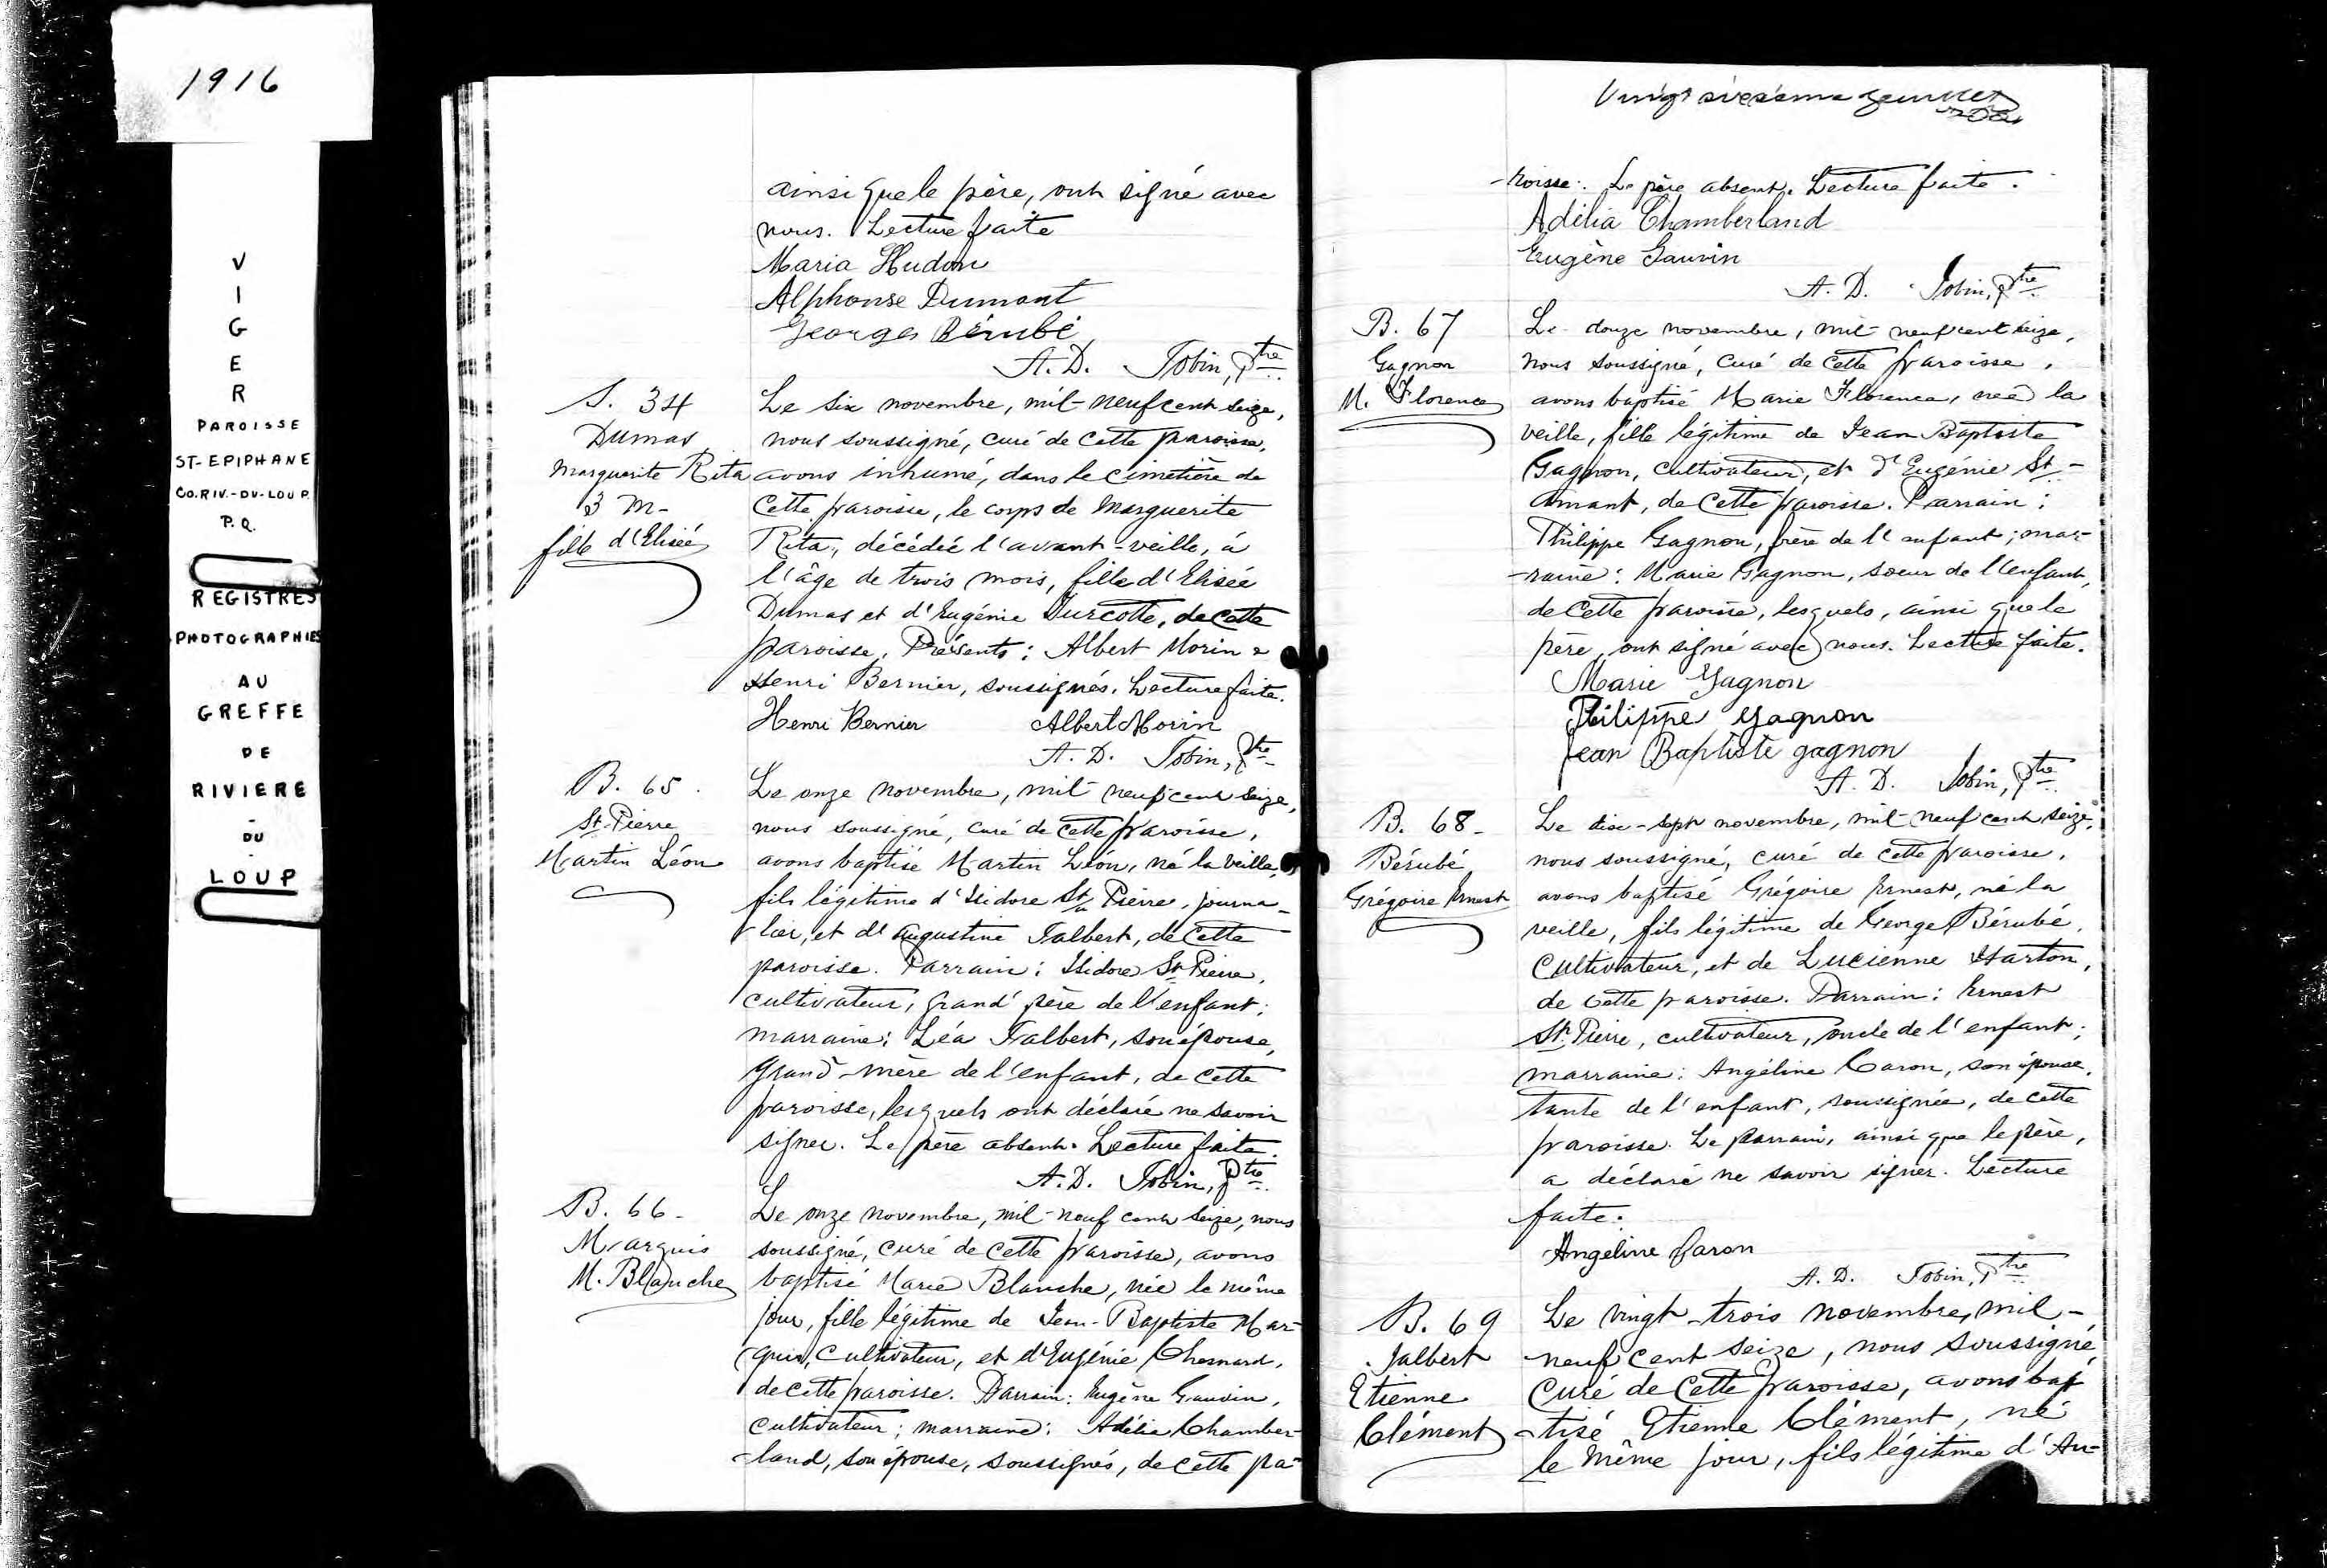 1916
V
I
G
E
R
PAROISSE
ST-EPIPHANE
CO.RIV.-DU-LOUP.
P.Q.
REGISTRES
PHOTOGRAPHIES
AU
GREFFE
DE
RIVIERE
-
DU
-
LOUP
ainsi que le père, ont signé avec
nous. Lecture faite
Maria Hudon
Alphonse Dumont
Georges Bérubé
A. D. Tobin, Ptre
S. 34
Dumas
Marguerite Rita
3 m-
fille d'Elisée
Le six novembre, mil-neuf cent seize,
nous soussigné, curé de cette paroisse,
avons inhumé, dans le cimetière de
cette paroisse, le corps de Marguerite
Rita, décédée l'avant-veille, à
l'âge de trois mois, fille d'Elisée
Dumas et d'Eugénie Turcotte, de cette
paroisse. Présents: Albert Morin &
Henri Bernier, soussignés. Lecture faite.
Henri Bernier Albert Morin
A. D. Tobin, Ptre
B. 65.
St-Pierre
Martin Léon
Le onze novembre, mil-neuf cent seize,
nous soussigné, curé de cette paroisse,
avons baptisé Martin Léon, né la veille,
fils légitime d'Isidore St-Pierre, journa-
lier, et d'Augustine Talbert, de cette
paroisse. Parrain: Isidore St-Pierre,
cultivateur, grand'père de l'enfant;
marraine: Léa Talbert, son épouse,
grand-mère de l'enfant, de cette
paroisse, lesquels ont déclaré ne savoir
signer. Le père absent. Lecture faite.
A. D. Tobin, Ptre
B. 66-
Marquis
M. Blanche
Le onze novembre, mil-neuf cent seize, nous
soussigné, curé de cette paroisse, avons
baptisé Marie Blanche, née le même
jour, fille légitime de Jean-Baptiste Mar-
quis, cultivateur, et d'Eugénie Chesnard,
de cette paroisse. Parrain: Eugène Gauvin,
cultivateur; marraine: Adélia Chamber-
-land, son épouse, soussignés, de cette pa-
Vingt sixième
-roisse. Le père absent. Lecture faite.
Adélia Chamberland
Eugène Gauvin
A. D. Tobin, Ptre
B. 67
Gagnon
M. Florence
Le douze novembre, mil-neuf cent seize,
nous soussigné, curé de cette paroisse,
avons baptisé Marie Florence, née la
veille, fille légitime de Jean Baptiste
Gagnon, cultivateur, et d'Eugénie St-
Amant, de cette paroisse. Parrain:
Philippe Gagnon, frère de l'enfant; mar-
-raine: Marie Gagnon, soeur de l'enfant,
de cette paroisse, lesquels, ainsi que le
père, ont signé avec nous. Lecture faite.
Marie Gagnon
Philippe Gagnon
Jean Baptiste gagnon
A. D. Tobin, Ptre
B. 68-
Bérubé
Grégoire Ernest
Le dix-sept novembre, mil-neuf cent seize,
nous soussigné, curé de cette paroisse,
avons baptisé Grégoire Ernest, né la
veille, fils légitime de George Bérubé,
cultivateur, et de Lucienne Harton,
de cette paroisse. Parrain: Ernest
St-Pierre, cultivateur, oncle de l'enfant;
marraine: Angéline Caron, son épouse,
tante de l'enfant, soussignée, de cette
paroisse. Le parrain, ainsi que le père,
a déclaré ne savoir signer. Lecture
faite.
Angeline Caron
A. D. Tobin, Ptre
B. 69
Jalbert
Etienne
Clément
Le vingt-trois novembre, mil-
neuf cent seize, nous soussigné,
curé de cette paroisse, avons bap
-tisé Etienne Clément, né
le même jour, fils légitime d'Au-